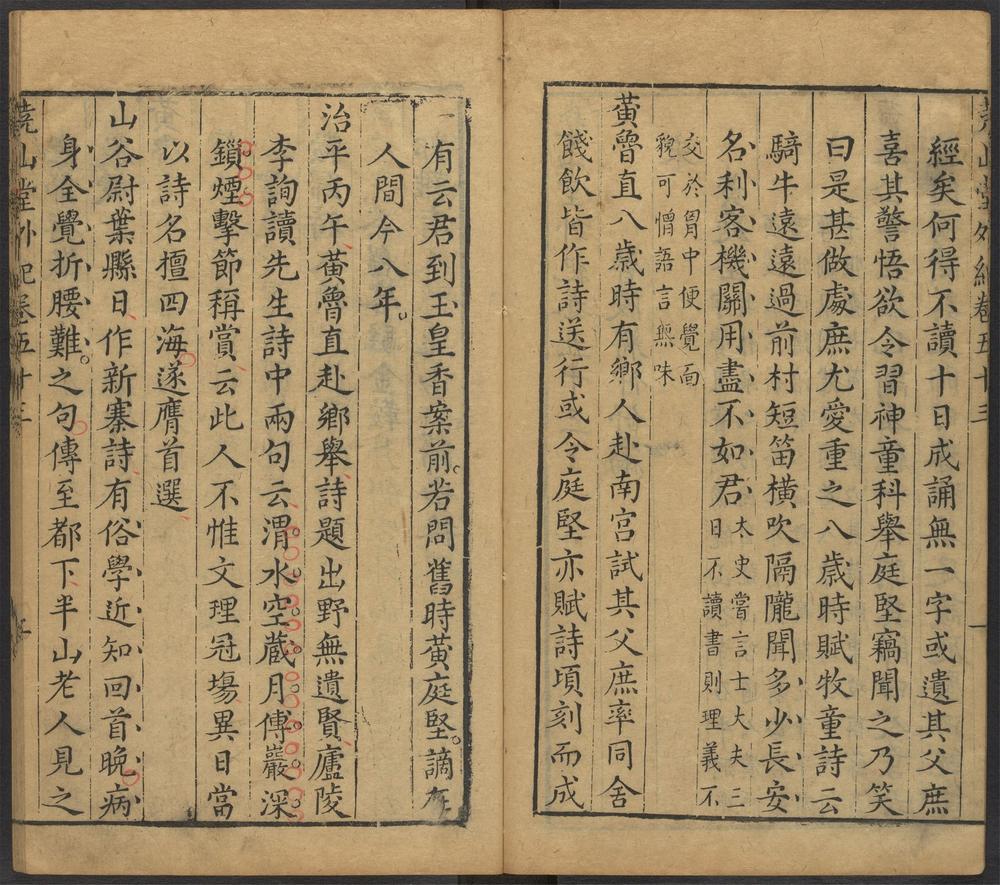 堯山堂外紀卷五十三 一
經矣何得不讀十日成誦無一字或遺其父庶
喜其警悟欲令習神童科舉庭堅竊聞之乃笑
曰是甚做處庶尤愛重之八歲時賦牧童詩云
騎牛遠遠過前村短笛橫吹隔隴聞多少長安
名利客機關用盡不如君太史嘗言士大夫三
日不讀書則理義不
交於胷中便覺面
貌可憎語言無味
黃魯直八歲時有鄉人赴南宮試其父庶率同舍
餞飲皆作詩送行或令庭堅亦賦詩頃刻而成
有云君到玉皇香案前若問舊時黃庭堅謫在
人間今八年
治平丙午黃魯直赴鄉舉詩題出野無遺賢廬陵
李詢讀先生詩中兩句云渭水空藏月傅巖深
鎖煙擊節稱賞云此人不惟文理冠場異日當
以詩名擅四海遂膺首選
山谷尉葉縣日作新寨詩有俗學近知回首晚病
身全覺折腰難之句傳至都下半山老人見之
堯山堂外紀卷五十三